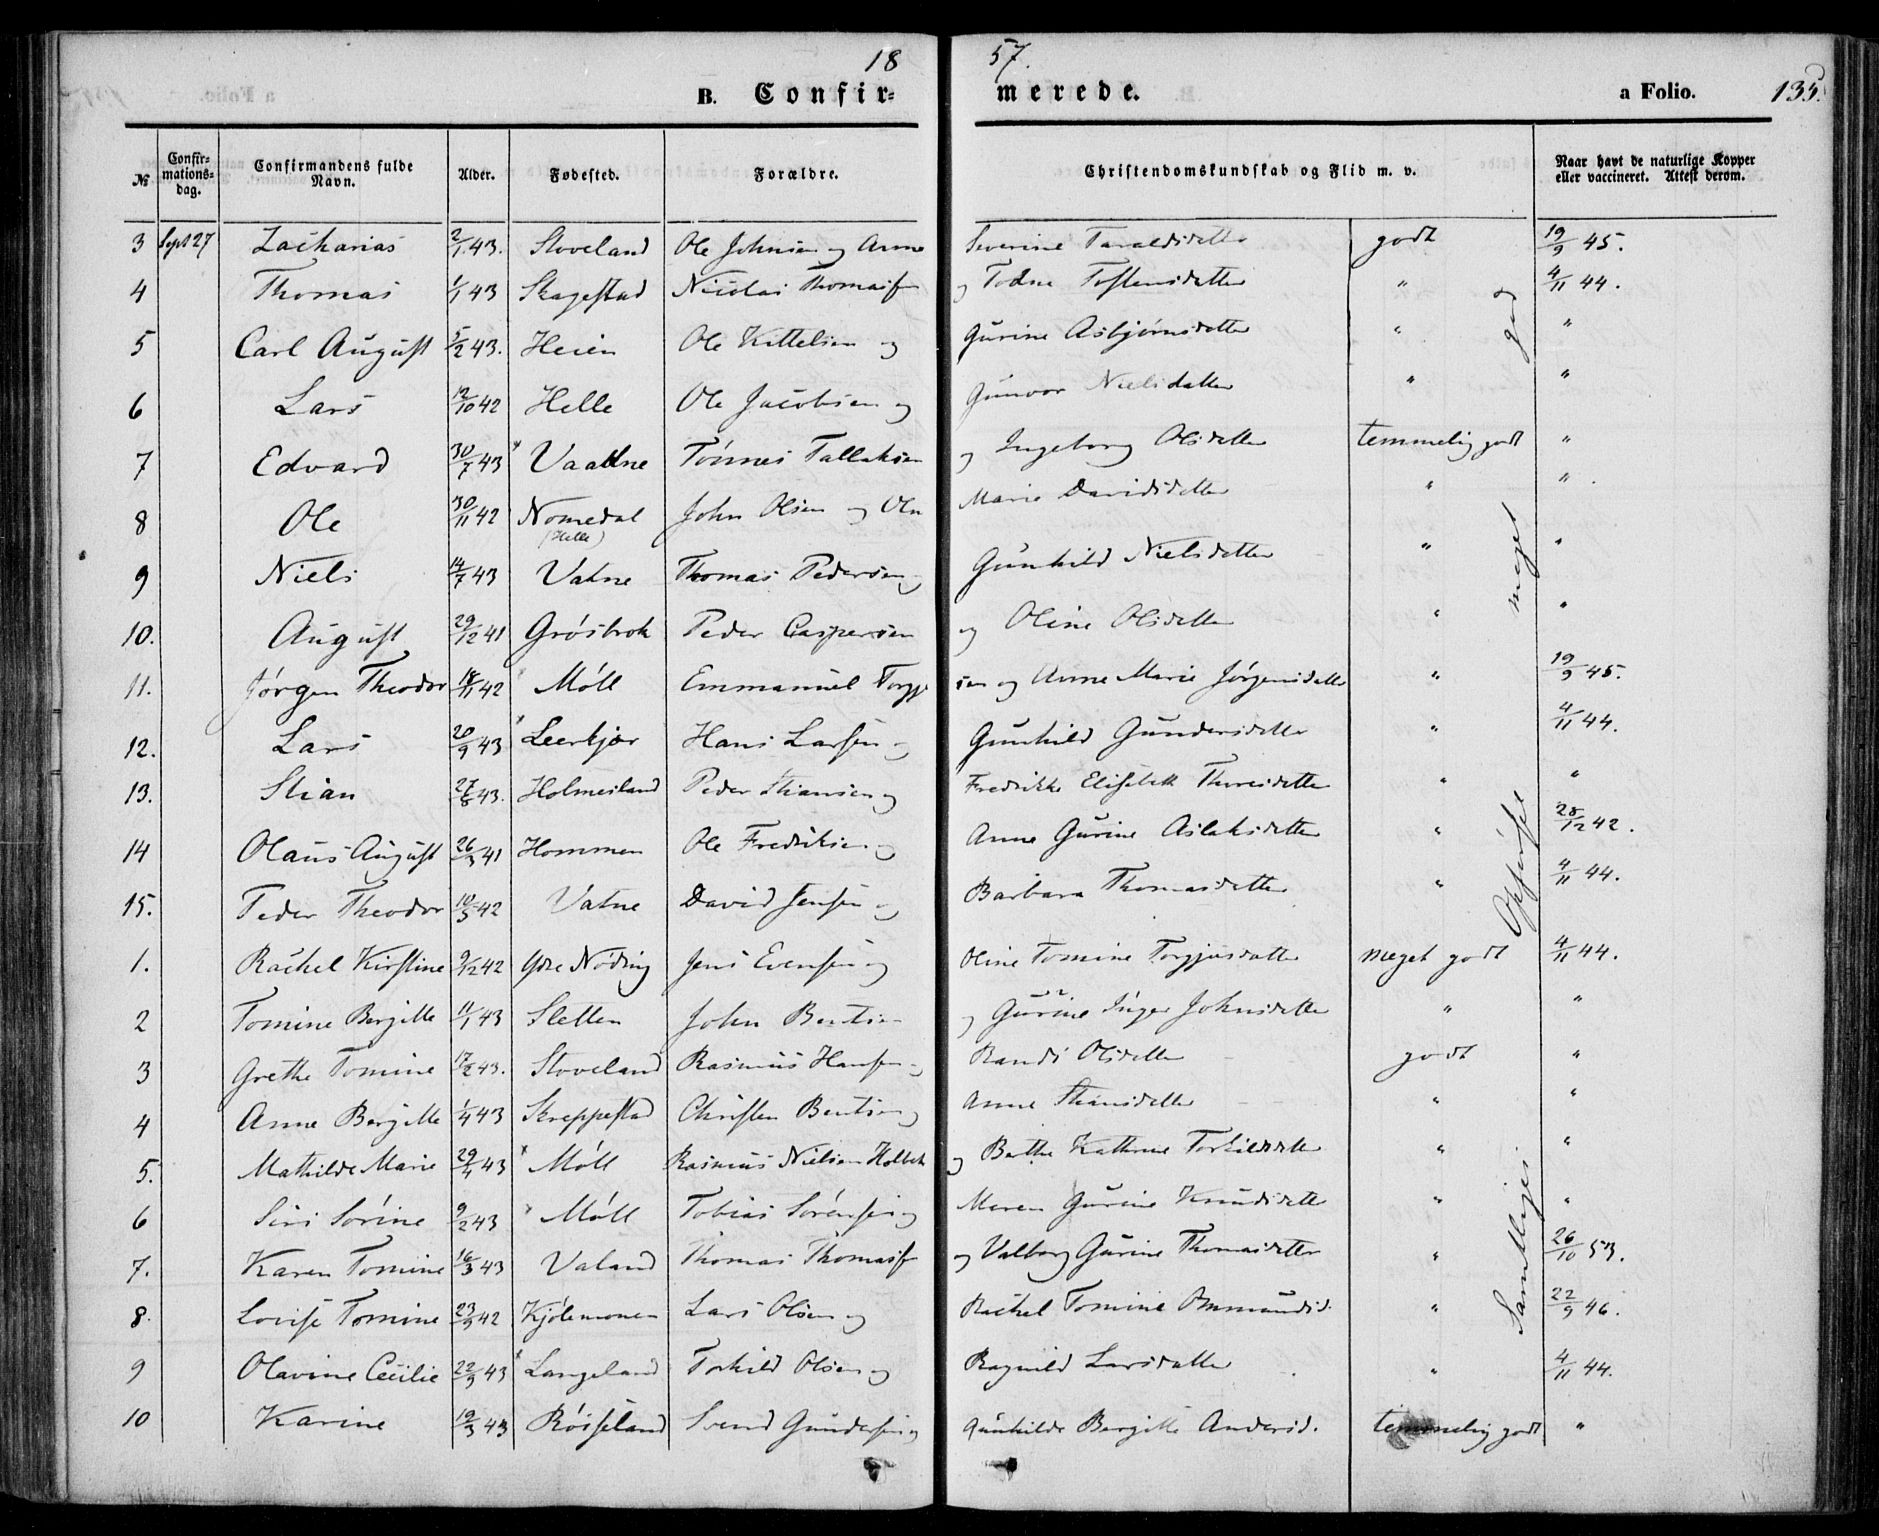 1857.
B. Confirmerede. a Folio. 135.
№ Confirmationsdag. Confirmandens fulde Navn. Alder. Fødested. Forældre. Christendomskundskab og Flid m. v. Naar havt de naturlige Kopper eller vaccineret. Attest derom.
3 Sept 27 Zacharias 2/1 43. Stoveland Ole Johnsen og Anne Severine Taraldsdatter godt 19/9 45.
4 Thomas 1/1 43 Skagestad Nicolai Thomass og Todne Tostensdatter " 4/11 44.
5 Carl August 5/2 43. Heien Ole Kittelsen og Gurine Asbjørnsdatter " "
6 Lars 12/10 42 Helle Ole Jacobsen og Gunvor Nielsdatter " "
7 Edvard 30/7 43 Vaatne Tønnes Tallaksen og Ingeborg Olsdatter temmelig godt "
8 Ole 30/11 42 Nomedal (Helle) John Olsen og Marie Davidsdatter " "
9 Niels 14/7 43 Vatne Thomas Pedersen og Gunhild Nielsdatter " "
10. August 29/12 41 Grøsbrok Peder Caspersen og Oline Olsdatter " "
11. Jørgen Theodor 18/11 42 Møll Emmanuel Torgjussen og Anne Marie Jørgensdatter " 19/9 45.
12. Lars 20/9 43 Leerkjær Hans Larsen og Gunhild Gundersdatter " 4/11 44.
13. Stian 27/8 43. Holmesland Peder Stiansen og Fredrikke Elisabeth Thoresdatter " "
14 Olaus August 26/3 41 Hommen Ole Fredriksen og Anne Gurine Aslaksdatter " 28/12 42.
15. Peder Theodor 10/3 42 Vatne David Jensen og Barbara Thomasdatter " 4/11 44.
1. Rachel Kirstine 9/12 42 Ydre Nøding Jens Evensen og Oline Tomine Torgjusdatter meget godt 4/11 44.
2 Tomine Bergitte 11/1 43 Sletten John Bentsen og Gurine Inger Johnsdatter " "
3 Grethe Tomine 17/2 43. Stoveland Rasmus Hansen og Randi Olsdatter godt "
4 Anne Bergitte 1/4 43 Skreppestad Christen Bentsen og Anne Stiansdatter " "
5. Mathilde Marie 29/4 43 Møll Rasmus Nielsen Holbek og Berthe Kathrine Torkildsdatter " "
6 Siri Sørine 9/2 43 Møll Tobias Sørensen og Maren Gurine Knudsdatter " "
7. Karen Tomine 16/3 43 Valand Thomas Thomass og Valborg Gurine Thomasdatter " 26/10 53.
8. Lovise Tomine 23/9 42 Kjølemonen Lars Olsen og Rachel Tomine Ommundsd. " 22/9 46.
9 Olavine Cecilie 22/3 43 Langeland Torkild Olsen og Ragnild Larsdatter " 4/11 44.
10 Karine 19/3 43 Røiseland Svend Gundersen og Gunhilde Bergitte Andersd. temmelig godt "
Samtliges Opførsel meget god